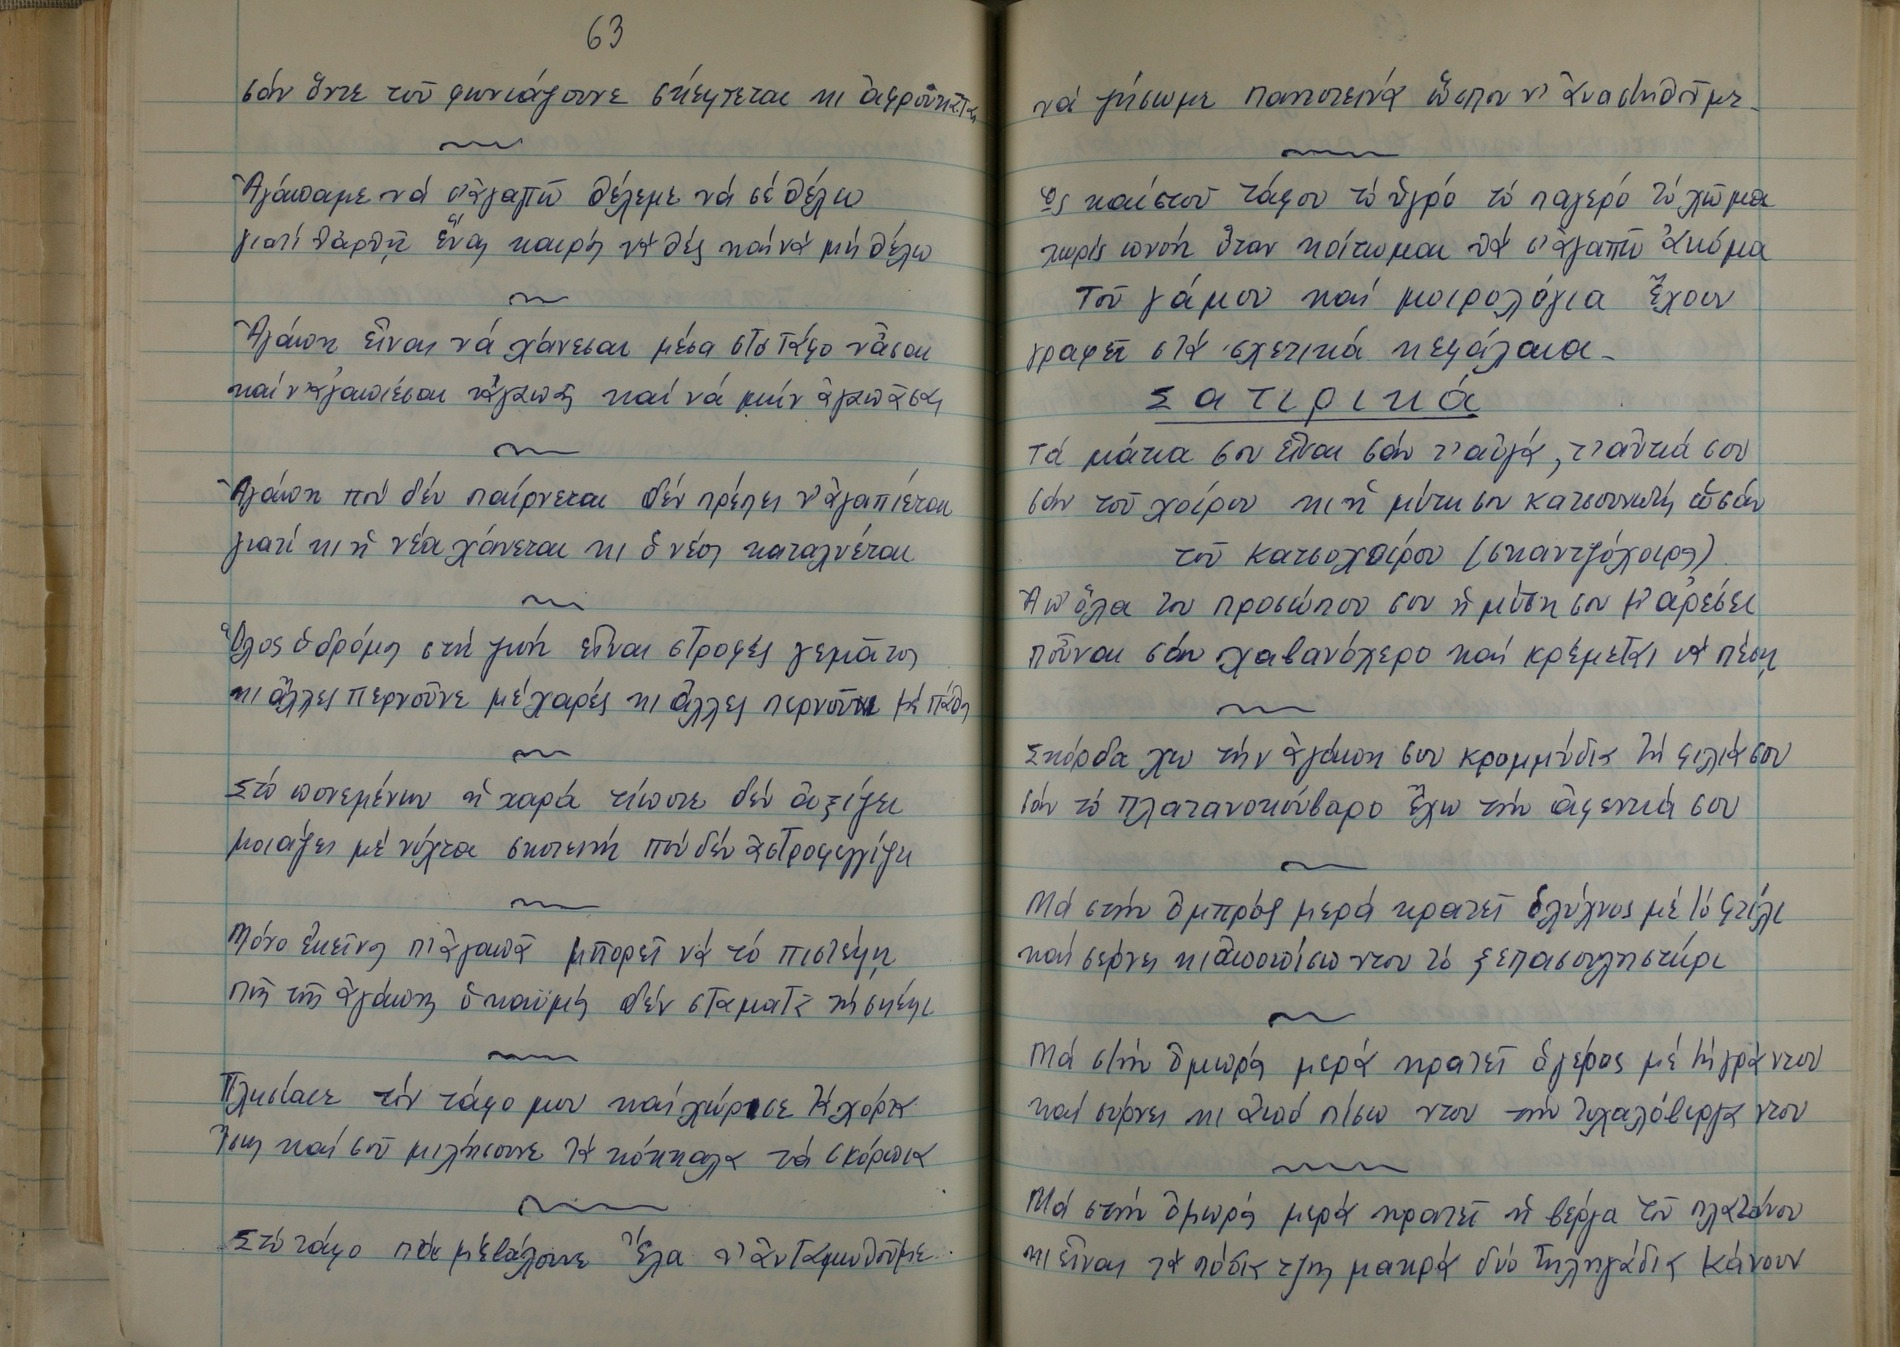 63
σάν ὄντε τοῦ φωνιάζουνε σκέφτεται κι ἀφρουκᾶται
Ἀγάπαμε νά σ' ἀγαπῶ θέλεμε νά σέ θέλω
γιατί θἀρθῆ ἕνας καιρός νά θές καί νά μή θέλω
Ἀγάπη εἶναι νά χάνεσαι μέσα στό τάφο νἆσαι
καί ν' ἀγαπιέσαι ν' ἀγαπᾶς καί νά μήν ἀγαπᾶσαι
Ἀγάπη πού δέν παίρνεται δέν πρέπει ν' ἀγαπιέται
γιατί κι ἡ νέα χάνεται κι ὁ νέος καταλυέται
Ὅλος ὁ δρόμος στή ζωή εἶναι στροφές γεμάτος
κι ἄλλες περνοῦνε μέ χαρές κι ἄλλες περνοῦνε μέ πάθη
Στό πονεμένων ἡ χαρά τίποτε δέν ἀξίζει
μοιάζει μέ νύχτα σκοτεινή πού δέν ἀστροφεγγίζει
Μόνο ἐκεῖνος π' ἀγαπᾶ μπορεῖ νά τό πιστέψη
πώς τῆς ἀγάπης ὁ καϋμός δέν σταματᾶ τή σκέψι
Πλησίασε τόν τάφο μου καί χώρισε τά χόρτα
ἴσως καί σοῦ μιλήσουνε τά κόκκαλα τά σκόρπια
Στό τάφο πού μέ βάλουνε ἔλα ν' ἀνταμωθοῦμε
νά ζήσωμε παντοτεινά ὥσπου ν' ἀναστηθοῦμε
Ὡς καί στοῦ τάφου τό ὑγρό τό παγερό τό χῶμα
χωρίς πνοή ὅταν κοίτωμαι θά σ' ἀγαπῶ ἀκόμα
Τοῦ γάμου καί μοιρολόγια ἔχουν
γραφεῖ στά σχετικά κεφάλαια -
Σατιρικά
Τά μάτια σου εἶναι σάν τ' αὐγά, τ' αὐτιά σου
σάν τοῦ χοίρου κι ἡ μύτη σου κατσουνωτή ὡσάν
τοῦ κατσοχοίρου (σκαντζόχοιρος)
Ἀπ' ὅλα του προσώπου σου ἡ μύτη σου μ' ἀρέσει
ποὖναι σάν χαβανόχερο καί κρέμεται νά πέση
Σκόρδα χω τήν ἀγάπη σου κρομμύδια τή φιλιά σου
σάν τό πλατανοκούβαρο ἔχω τήν ἀφεντιά σου
Μά στήν ὀμπρός μερά κρατεῖ ὁ λύχνος μέ τό φτίλι
καί σέρνει κι ἀποπίσω ντου τό ξεπασουλιστήρι
Μά στήν ὀμπρός μερά κρατεῖ ὁ γέρος μέ τή γρά ντου
καί σύρνει κι ἀπό πίσω ντου τήν τυχαλόβεργα ντου
Μά στήν ὀμπρός μερά κρατεῖ ἡ βέργα τοῦ πλατάνου
κι εἶναι τά πόδια τζης μακρά δυό πηγάδια κάνουν